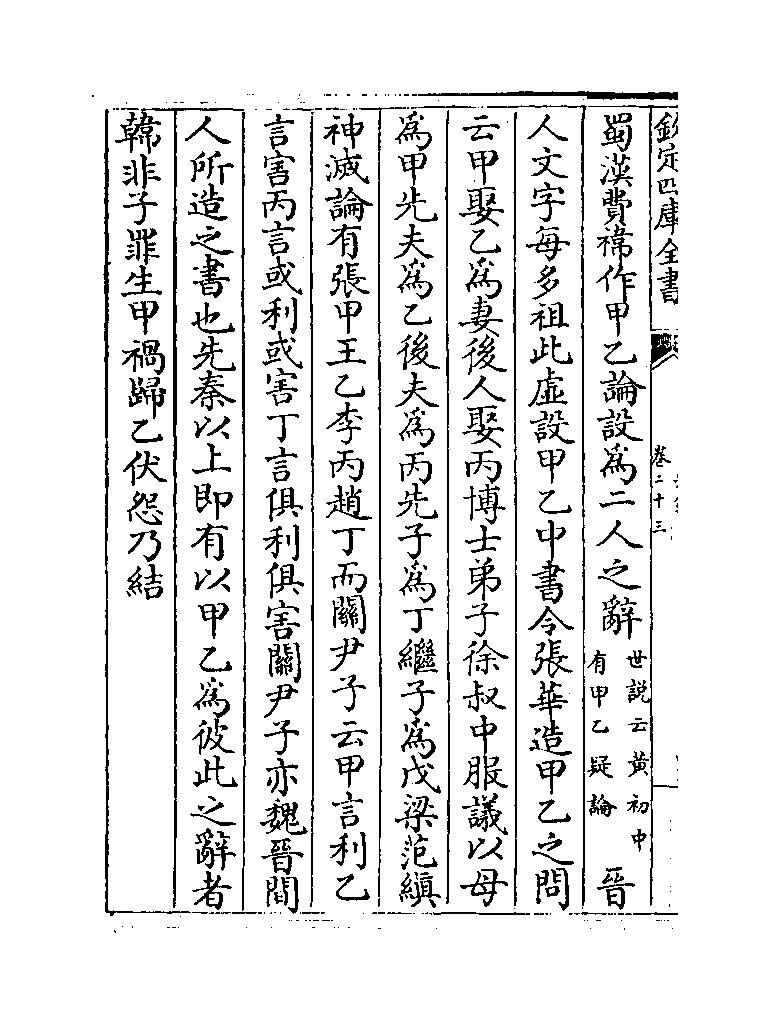 欽定四庫全書
卷二十三
蜀漢費禕作甲乙論設為二人之辭世説云黄初中有甲乙疑論晉
人文字每多祖此虛設甲乙中書令張華造甲乙之問
云甲娶乙為妻後人娶丙博士弟子徐叔中服議以母
為甲先夫為乙後夫為丙先子為丁繼子為戊梁范縝
神滅論有張甲王乙李丙趙丁而關尹子云甲言利乙
言害丙言或利或害丁言俱利俱害關尹子亦魏晉間
人所造之書也先秦以上即有以甲乙為彼此之辭者
韓非子罪生甲禍歸乙伏怨乃結